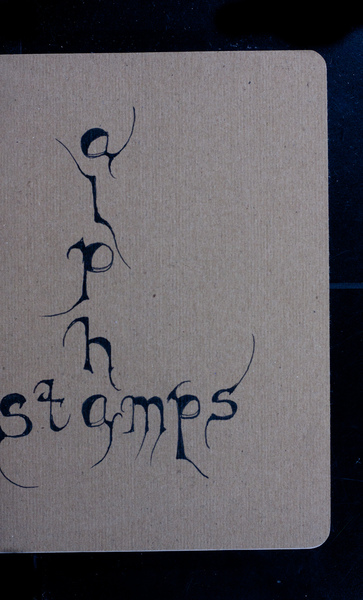 a
l
p
h
stamps